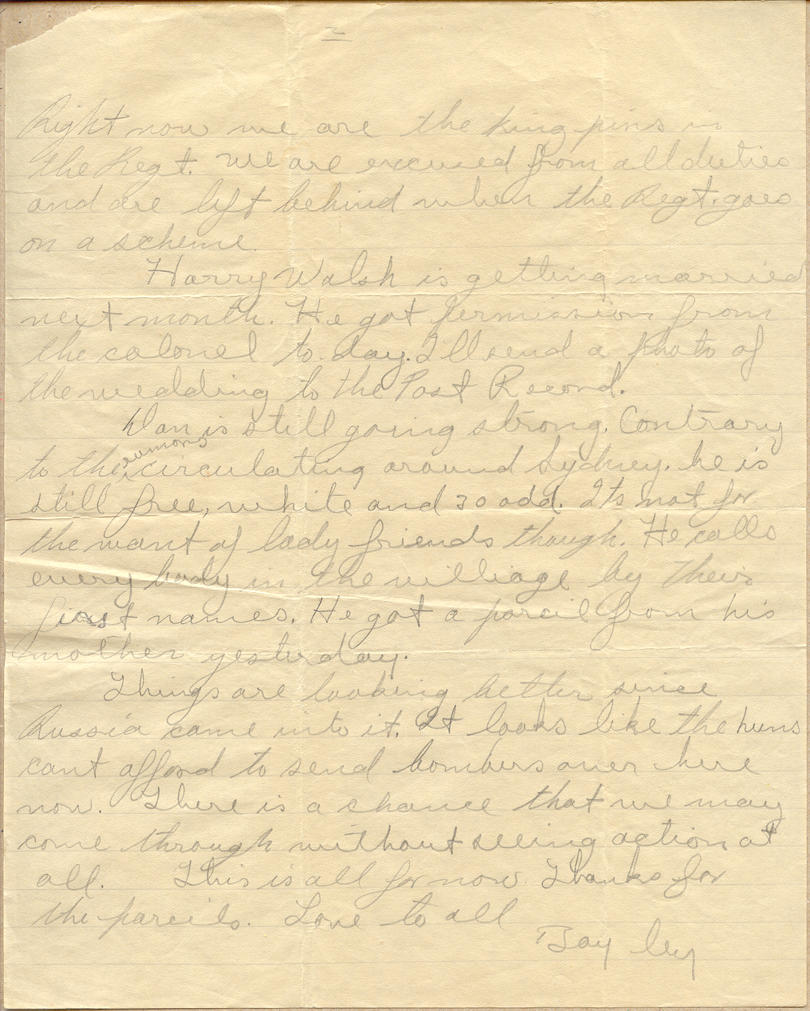 2
Right now we are the King pins in
the Regt. We are excused from all duties
and are left behind when the Regt. goes
on a scheme.
Harry Walsh is getting married
next month. He got permission from
the colonel to day. I'll send a photo of
the wedding to the Post Record.
Dan is still going strong. Contrary
rumors
to the circulating around Sydney. he is
still free, white and 30 odd. Its not for
the want of lady friends though. He calls
every body in the villiage by their
first names. He got a parcil from his
mother yesterday.
Things are looking better since
Russia came into it. It looks like the huns
cant afford to send bombers over here
now. There is a chance that we may
come through without seeing action at
all. This is all for now. Thanks for
the parcils. Love to all